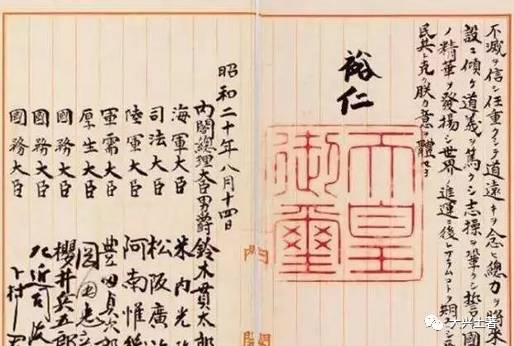 不滅ヲ信シ任重クシテ道遠キヲ念ヒ總力ヲ將來
設ニ傾ケ道義ヲ篤クシ志操ヲ鞏クシ誓テ國
ノ精華ヲ發揚シ世界ノ進運ニ後レサラムコトヲ期ス
民其レ克ク朕カ意ヲ體セヨ
裕仁
天皇
御璽
昭和二十年八月十四日
内閣總理大臣男爵 鈴木貫太郎
海軍大臣 米内光政
司法大臣 松阪廣
陸軍大臣 阿南惟幾
軍需大臣 豊田貞次郎
厚生大臣 岡田忠
國務大臣 櫻井兵五郎
國務大臣 左近司政
國務大臣 下村
大兴土著